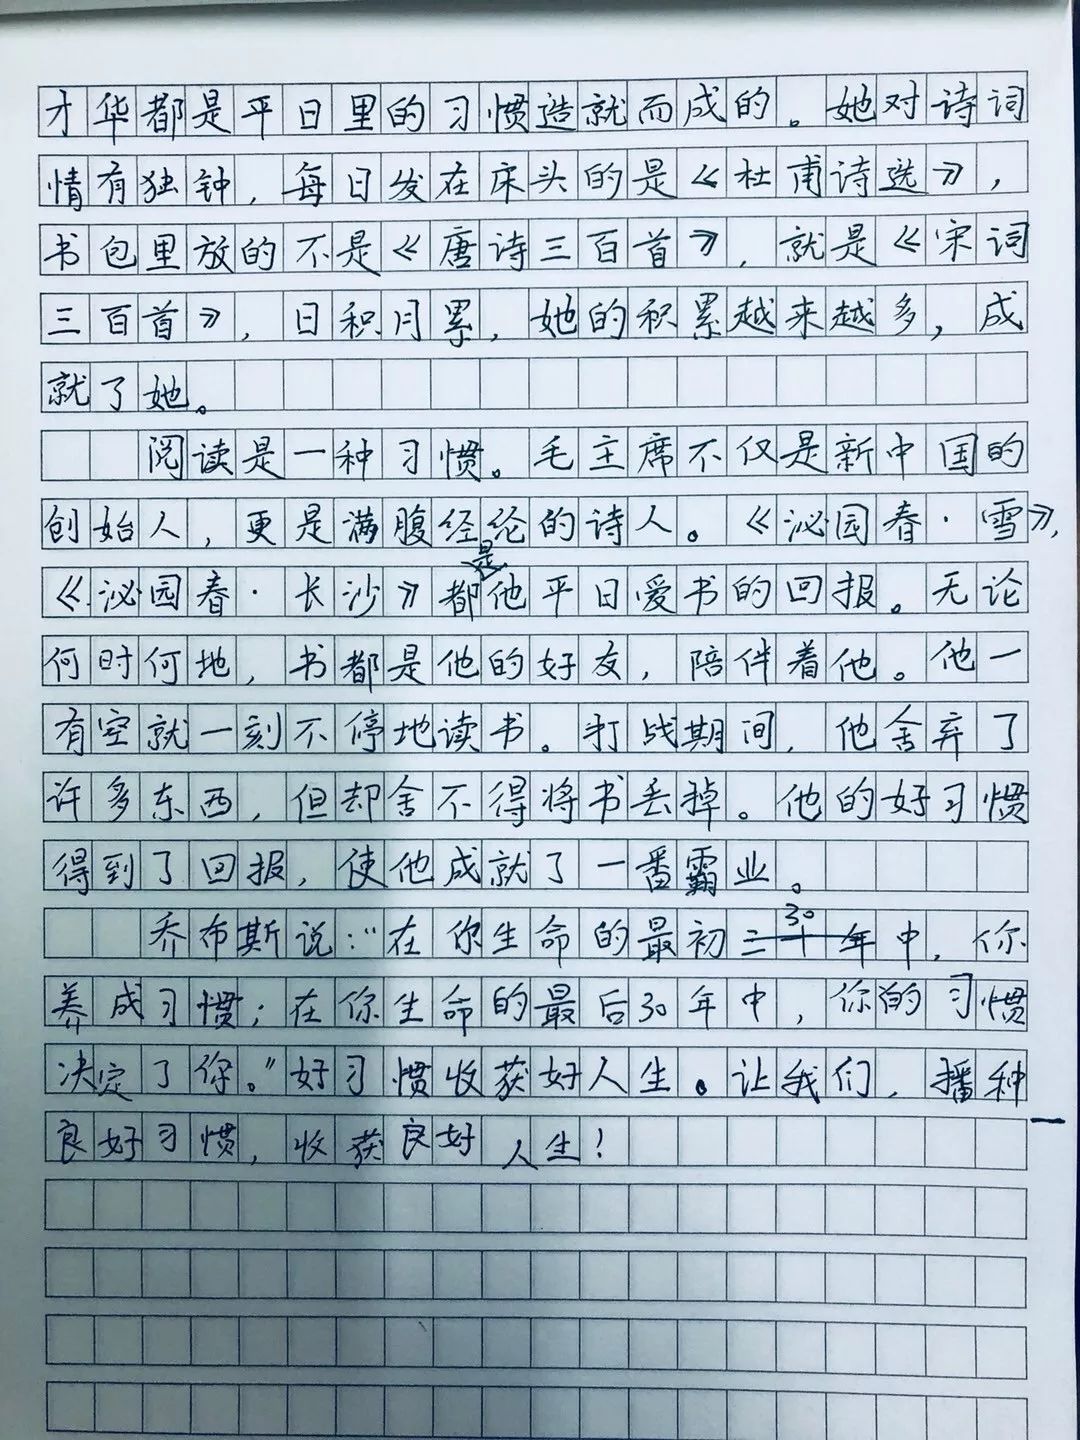 才华都是平日里的习惯造就而成的。她对诗词
情有独钟，每日发在床头的是《杜甫诗选》，
书包里放的不是《唐诗三百首》，就是《宋词
三百首》，日积月累，她的积累越来越多，成
就了她。
阅读是一种习惯。毛主席不仅是新中国的
创始人，更是满腹经纶的诗人。《沁园春·雪》，
《沁园春·长沙》都是他平日爱书的回报。无论
何时何地，书都是他的好友，陪伴着他。他一
有空就一刻不停地读书。打战期间，他舍弃了
许多东西，但却舍不得将书丢掉。他的好习惯
得到了回报，使他成就了一番霸业。
乔布斯说："在你生命的最初30年中，你
养成习惯；在你生命的最后30年中，你的习惯
决定了你。"好习惯收获好人生。让我们，播种
良好习惯，收获良好人生！